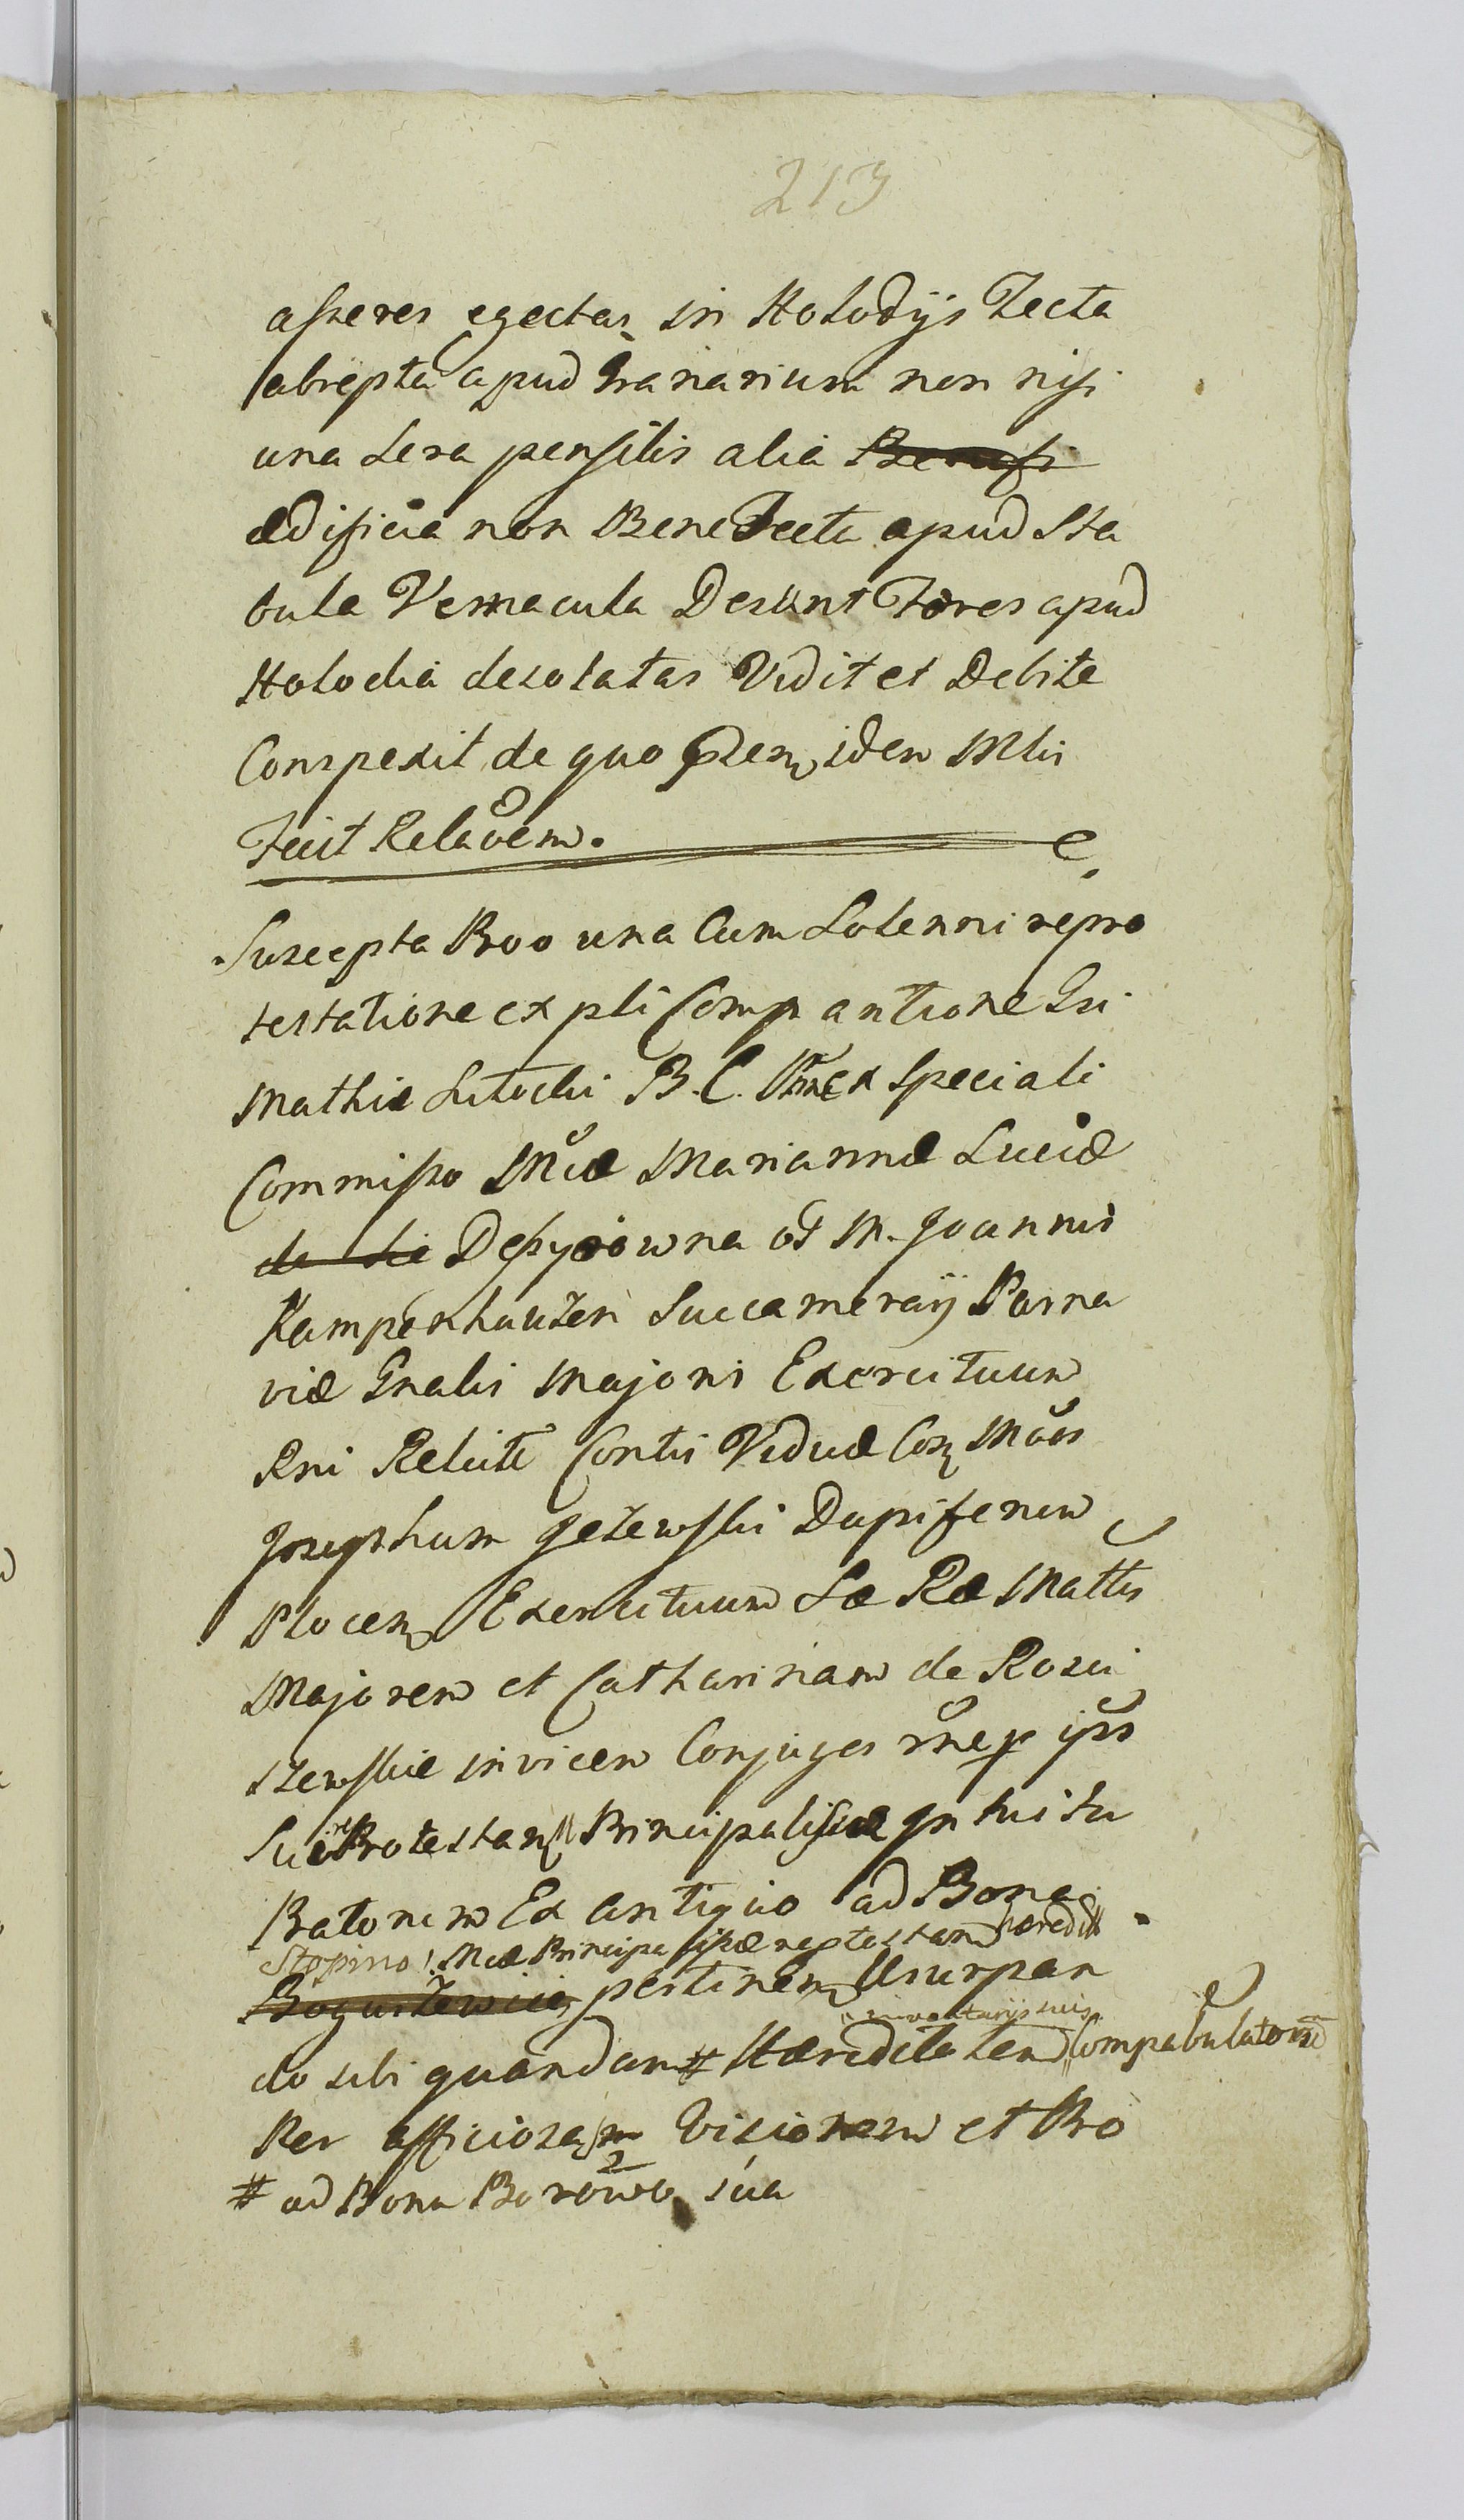 213
asseres egectas in Holodijs Tecta
abrepta apud Granarium non nisi
una Sera pensilis alia
ædificia non Bene Tecta apud Sta
bula Vernacula Desunt Fores apud
Holodia desolatas Vidit et Debite
Conspexit de quo idem Mlis
Fecit Relaõem.
Suscepta Proo una Cum Solenni repro
testatione ex pli Comp antione Gsi
Mathiæ B. C. ex Speciali
Commisso Mcæ Mariannæ Luciæ
M. Joannis
Kampenhauzen Succamerarij Parna
viæ Gnalis Majoris Exercituum
Rni Relicte Contis Viduæ Con Mcos
Josephum Jezewski Dapiferum
Plocen Exercituum Sæ Ræ Mattis
Majorem et Catharinam de Rosci
szewskie invicem Conjuges
suæ Protestan Principalis suæ
Ex antiquo ad Bona
Stopino Mcæ Principa ipsæ reptestan hæredit
pertinen Usurpan
inventarijs suis
do sibi quandam # Hæreditatem Compabulatoriæ
Per officiosam Visionem et Pro
# ad Bona Borowo sua